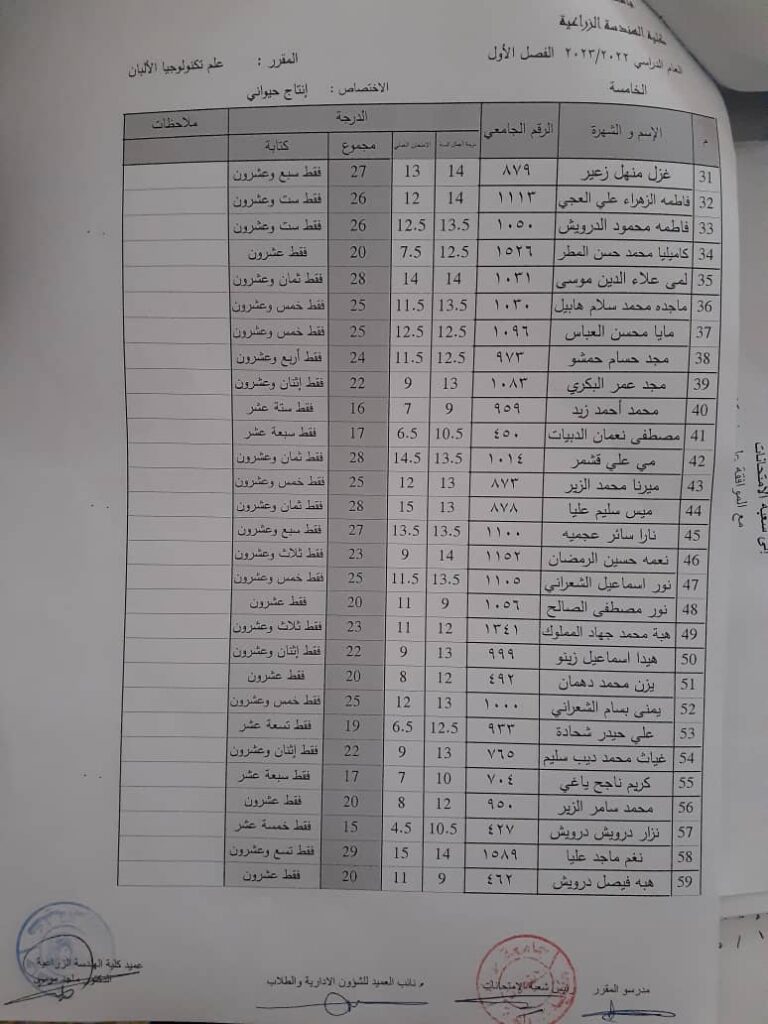 كلية الهندسة الزراعية
العام الدراسي ٢٠٢٣/٢٠٢٢ الفصل الأول
المقرر : علم تكنولوجيا الألبان
الخامسة
الاختصاص : إنتاج حيواني
م الإسم و الشهرة الرقم الجامعي الدرجة ملاحظات
درجة أعمال السنة الامتحان العملي مجموع كتابة
31 غزل منهل زعير ٨٧٩ 14 13 27 فقط سبع وعشرون
32 فاطمه الزهراء علي العجي ١١١٣ 14 12 26 فقط ست وعشرون
33 فاطمه محمود الدرويش ١٠٥٠ 13.5 12.5 26 فقط ست وعشرون
34 كاميليا محمد حسن المطر ١٥٢٦ 12.5 7.5 20 فقط عشرون
35 لمى علاء الدين موسى ١٠٣١ 14 14 28 فقط ثمان وعشرون
36 ماجده محمد سلام هابيل ١٠٣٠ 13.5 11.5 25 فقط خمس وعشرون
37 مايا محسن العباس ١٠٩٦ 12.5 12.5 25 فقط خمس وعشرون
38 مجد حسام حمشو ٩٧٣ 12.5 11.5 24 فقط أربع وعشرون
39 مجد عمر البكري ١٠٨٣ 13 9 22 فقط إثنان وعشرون
40 محمد أحمد زيد ٩٥٩ 9 7 16 فقط ستة عشر
41 مصطفى نعمان الدبيات ٤٥٠ 10.5 6.5 17 فقط سبعة عشر
42 مي علي قشمر ١٠١٤ 13.5 14.5 28 فقط ثمان وعشرون
43 ميرنا محمد الزير ٨٧٣ 13 12 25 فقط خمس وعشرون
44 ميس سليم عليا ٨٧٨ 13 15 28 فقط ثمان وعشرون
45 نارا سائر عجميه ١١٠٠ 13.5 13.5 27 فقط سبع وعشرون
46 نعمه حسين الرمضان ١١٥٢ 14 9 23 فقط ثلاث وعشرون
47 نور اسماعيل الشعراني ١١٠٥ 13.5 11.5 25 فقط خمس وعشرون
48 نور مصطفى الصالح ١٠٥٦ 9 11 20 فقط عشرون
49 هبة محمد جهاد المملوك ١٣٤١ 12 11 23 فقط ثلاث وعشرون
50 هيدا اسماعيل زينو ٩٩٩ 13 9 22 فقط إثنان وعشرون
51 يزن محمد دهمان ٤٩٢ 12 8 20 فقط عشرون
52 يمنى بسام الشعراني ١٠٠٠ 13 12 25 فقط خمس وعشرون
53 علي حيدر شحادة ٩٣٣ 12.5 6.5 19 فقط تسعة عشر
54 غياث محمد ديب سليم ٧٦٥ 13 9 22 فقط إثنان وعشرون
55 كريم ناجح ياغي ٧٠٤ 10 7 17 فقط سبعة عشر
56 محمد سامر الزير ٩٥٠ 12 8 20 فقط عشرون
57 نزار درويش درويش ٤٢٧ 10.5 4.5 15 فقط خمسة عشر
58 نغم ماجد عليا ١٥٨٩ 14 15 29 فقط تسع وعشرون
59 هبه فيصل درويش ٤٦٢ 9 11 20 فقط عشرون
مدرسو المقرر
رئيس شعبة الإمتحانات
م نائب العميد للشؤون الادارية والطلاب
عميد كلية الهندسة الزراعية
الدكتور ماجد موسى
شعبة الامتحانات
مع الموافقة